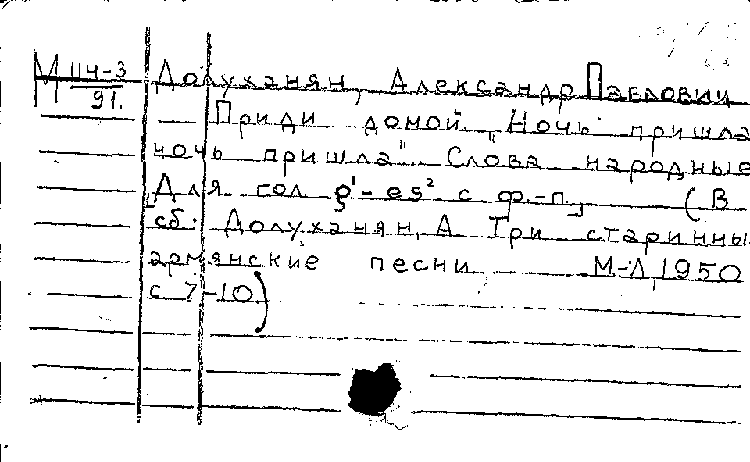 М 114-3 Долуханян, Александр Павлович
91.
Приди домой „Ночь пришла
ночь пришла". Слова народные
[Для гол g¹-es² с ф.-п.] (В
сб. Долуханян, А Три старинны
армянские песни, М-Л, 1950
с 7-10)